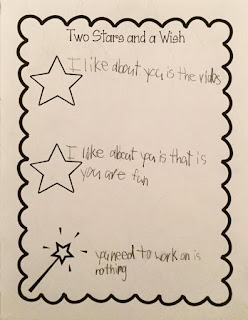 Two Stars and a Wish
I like about you is the
I like about you is that is
you are fun
you need to work on is
nothing